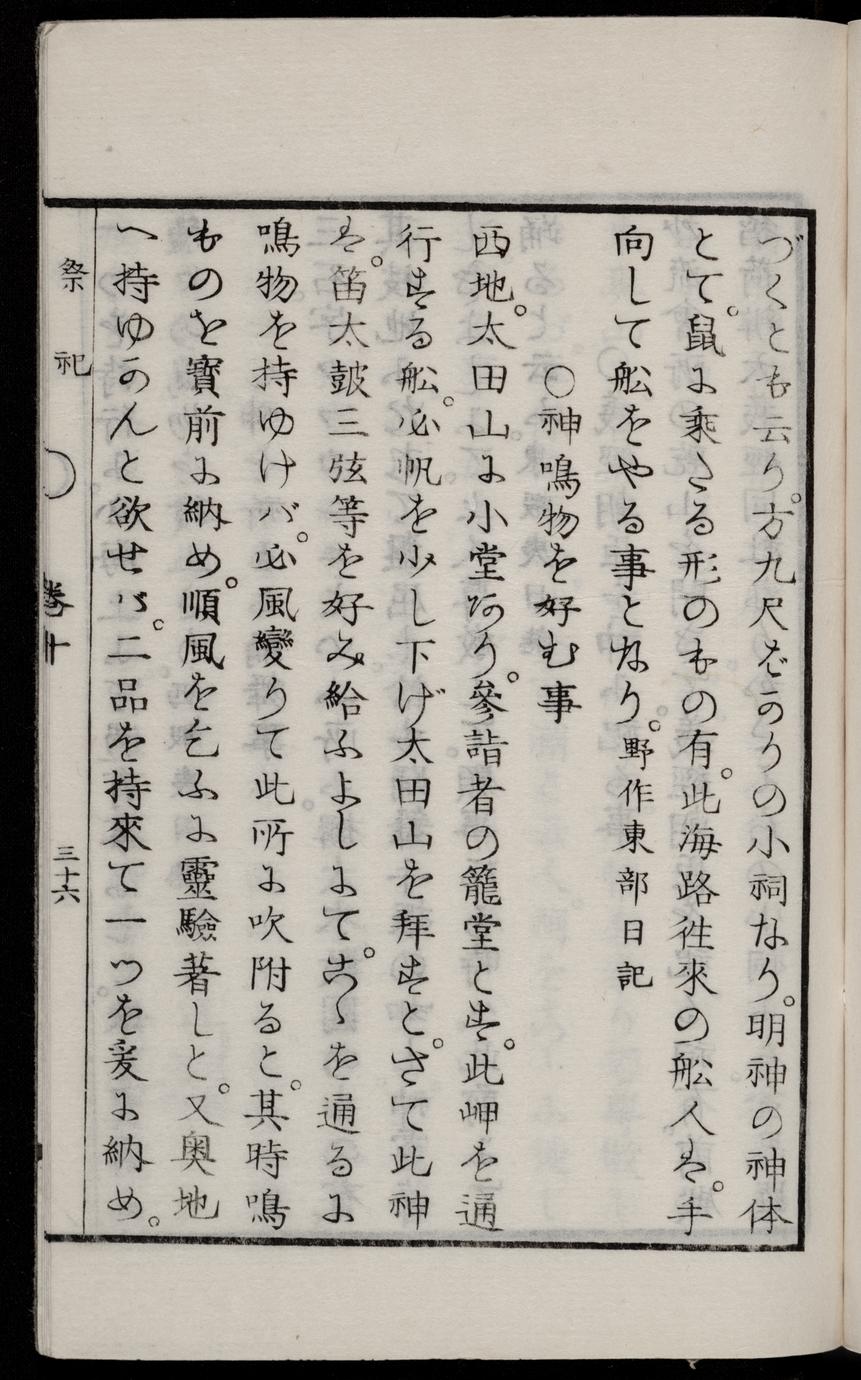 づくとも云り。方九尺ばかりの小祠なり。明神の神体
とて。鼠に乘たる形のもの有。此海路徃來の舩人は。手
向して舩をやる事となり。野作東部日記
○神鳴物を好む事
西地。太田山に小堂あり。參詣者の籠堂とす。此岬を通
行する舩。必帆を少し下げ太田山を拜すと。さて此神
は。笛太皷三弦等を好み給ふよしにて。こゝを通るに
鳴物を持ゆけバ。必風變りて此所に吹附ると。其時鳴
ものを寳前に納め。順風を乞ふに靈驗著しと。又奥地
へ持ゆかんと欲せバ。二品を持來て一ツを爰に納め。
祭祀 卷十 三十六